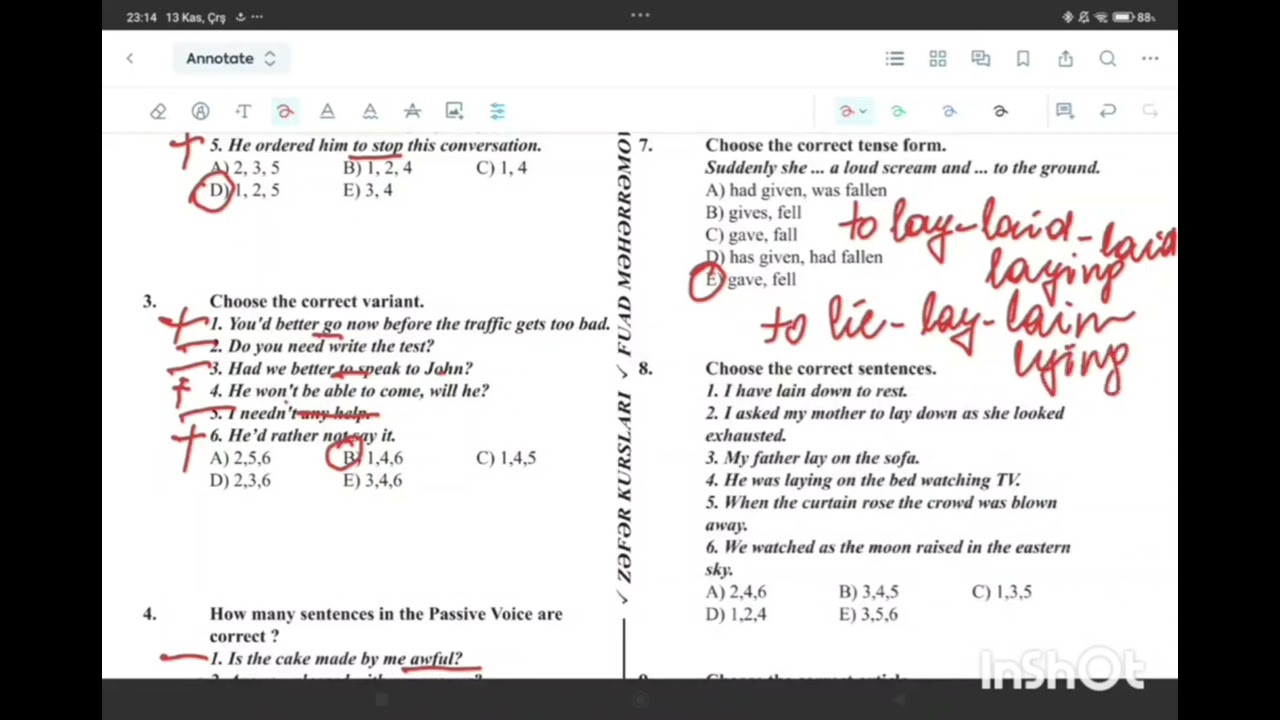 23:14 13 Kas, Çrş
88%
Annotate
5. He ordered him to stop this conversation.
A) 2, 3, 5 B) 1, 2, 4 C) 1, 4
D) 1, 2, 5 E) 3, 4
3. Choose the correct variant.
1. You'd better go now before the traffic gets too bad.
2. Do you need write the test?
3. Had we better to speak to John?
4. He won't be able to come, will he?
5. I needn't any help.
6. He'd rather not say it.
A) 2,5,6 B) 1,4,6 C) 1,4,5
D) 2,3,6 E) 3,4,6
4. How many sentences in the Passive Voice are
correct ?
1. Is the cake made by me awful?
ZƏFƏR KURSLARI ✓ FUAD MƏHƏRRƏMOV
7. Choose the correct tense form.
Suddenly she ... a loud scream and ... to the ground.
A) had given, was fallen
B) gives, fell
C) gave, fall
D) has given, had fallen
E) gave, fell
to lay-laid-laid
laying
to lie-lay-lain
lying
8. Choose the correct sentences.
1. I have lain down to rest.
2. I asked my mother to lay down as she looked
exhausted.
3. My father lay on the sofa.
4. He was laying on the bed watching TV.
5. When the curtain rose the crowd was blown
away.
6. We watched as the moon raised in the eastern
sky.
A) 2,4,6 B) 3,4,5 C) 1,3,5
D) 1,2,4 E) 3,5,6
InShOt